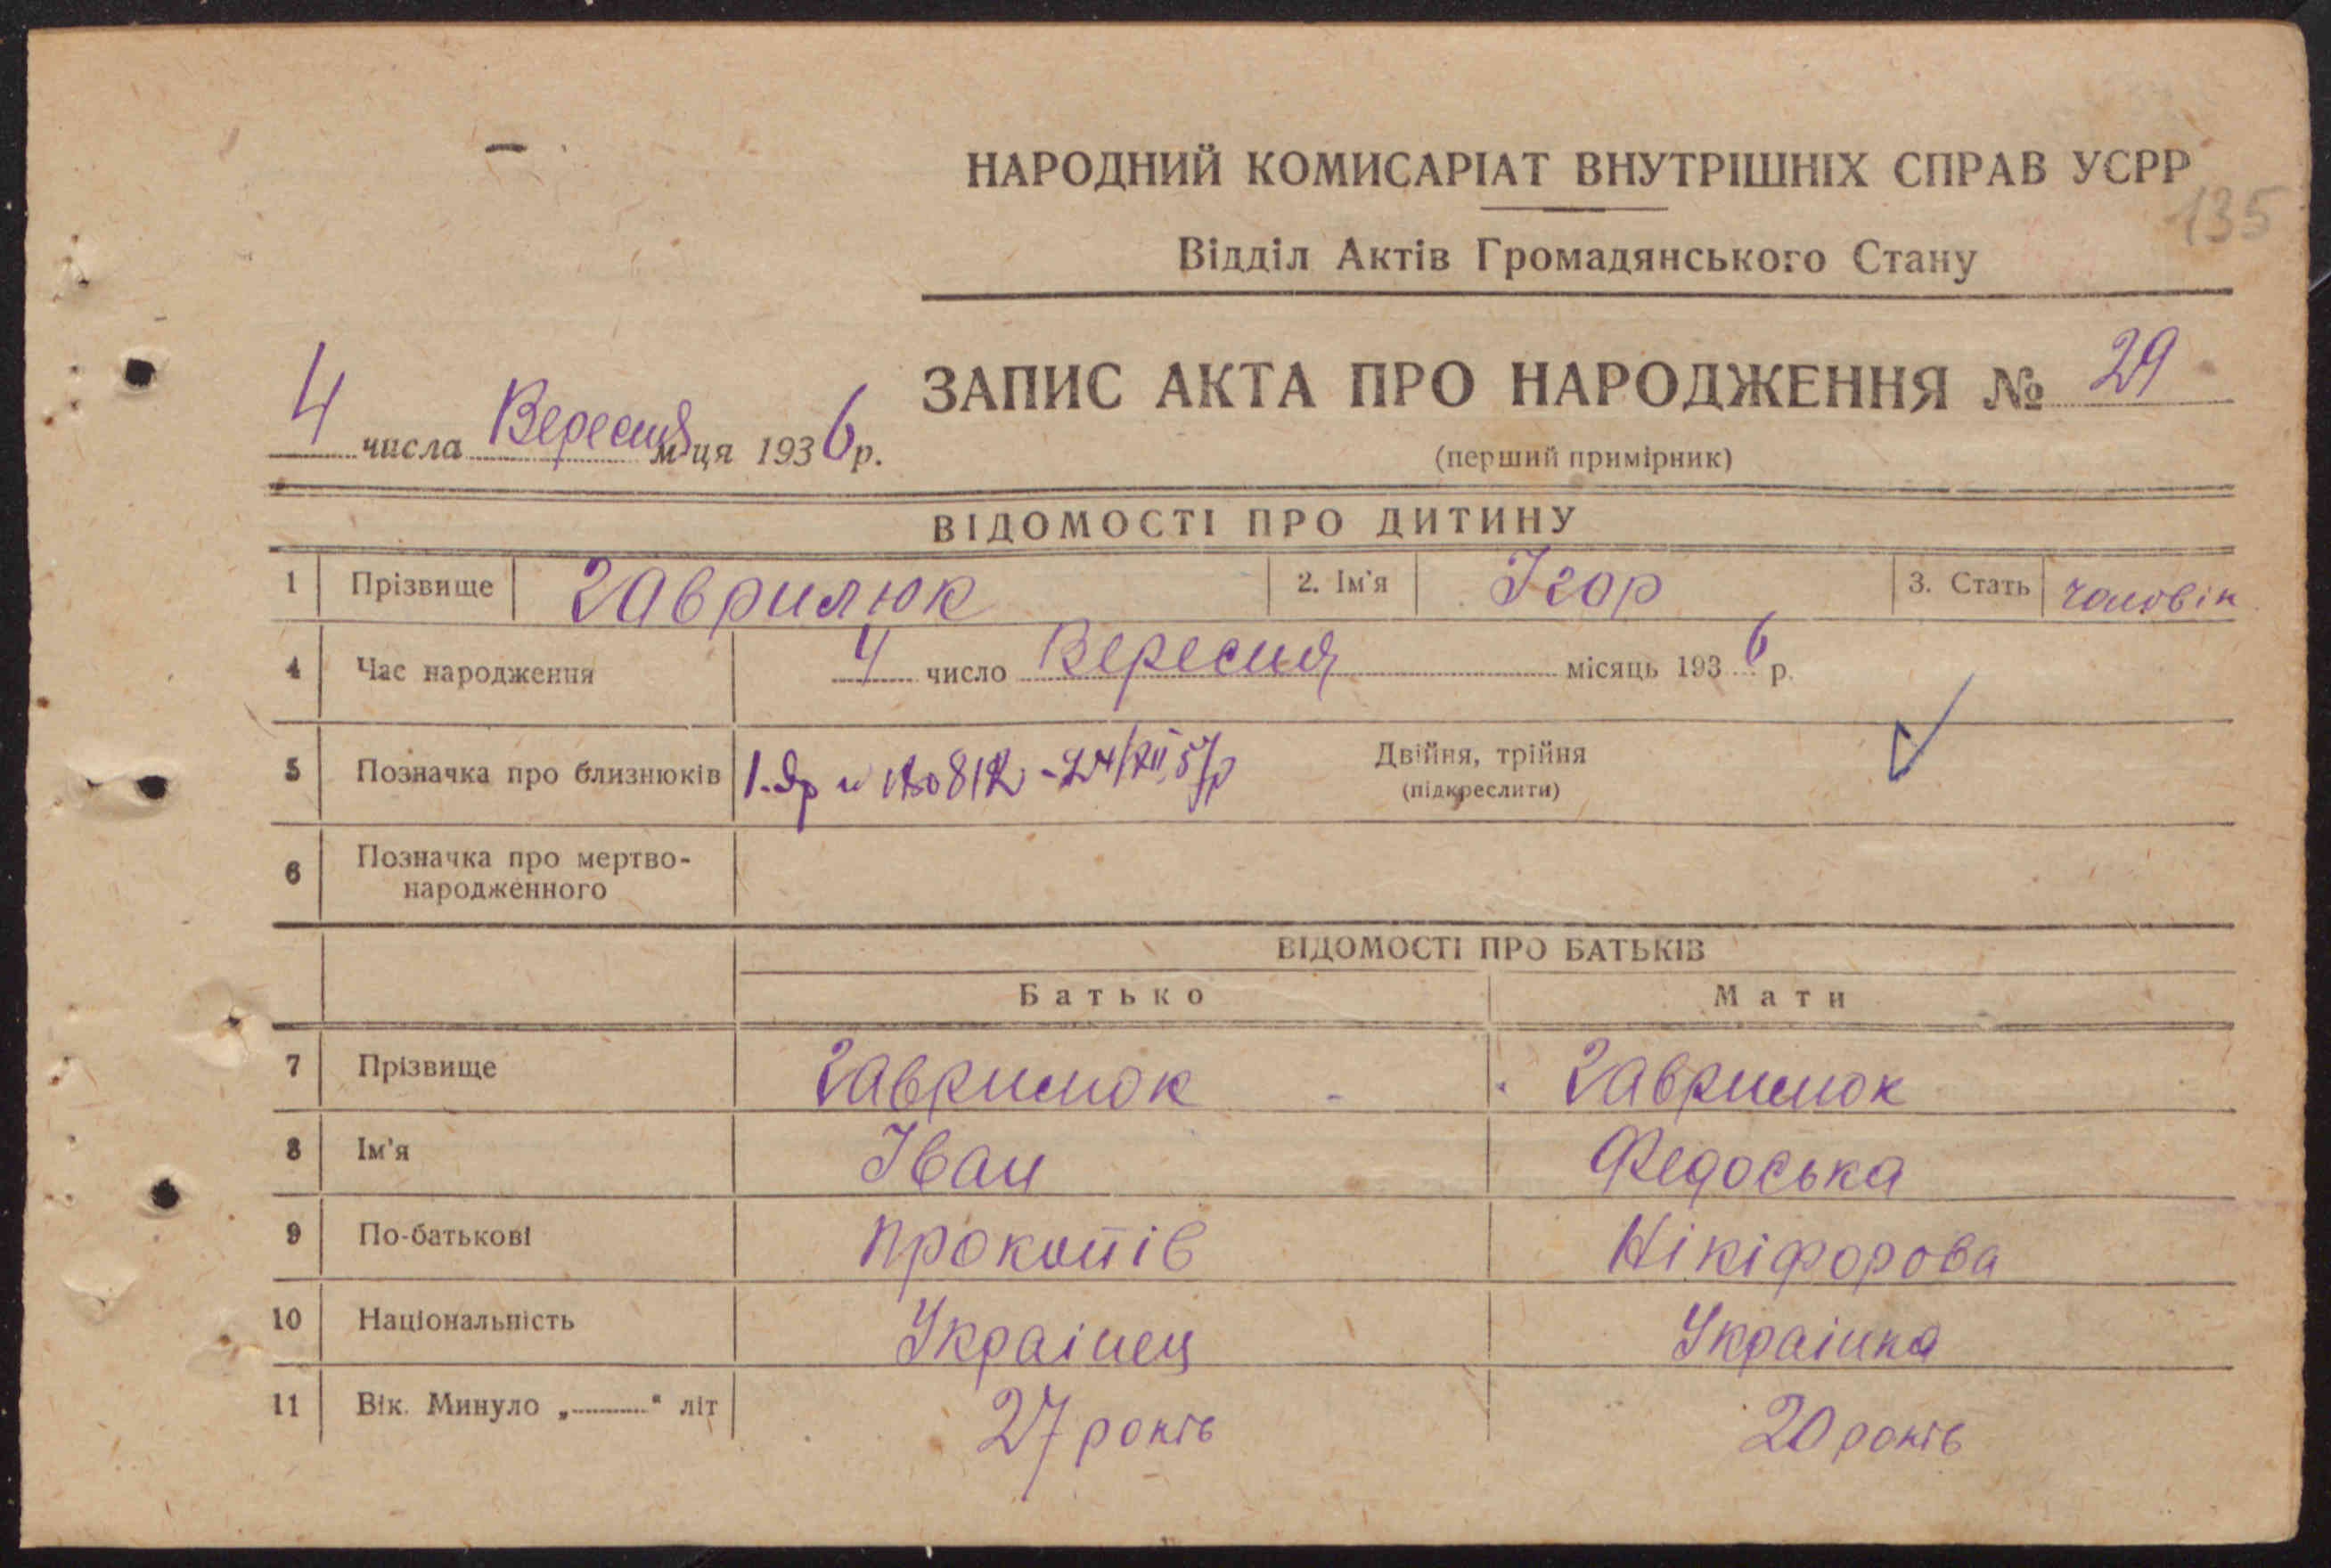 НАРОДНИЙ КОМИСАРІАТ ВНУТРІШНІХ СПРАВ УСРР
135
Відділ Актів Громадянського Стану
4 числа Вересня м-ця 1936 р.
ЗАПИС АКТА ПРО НАРОДЖЕННЯ № 29
(перший примірник)
ВІДОМОСТІ ПРО ДИТИНУ
1 Прізвище Гаврилюк 2. Ім'я Ігор 3. Стать чоловік
4 Час народження 4 число Вересня місяць 1936 р.
5 Позначка про близнюків Двійня, трійня
(підкреслити)
6 Позначка про мертво-
народженного
ВІДОМОСТІ ПРО БАТЬКІВ
Батько Мати
7 Прізвище Гаврилюк Гаврилюк
8 Ім'я Іван Федоська
9 По-батькові Прокопів Нікіфорова
10 Національність Украінец Украінка
11 Вік. Минуло „ “ літ 27 років 20 років